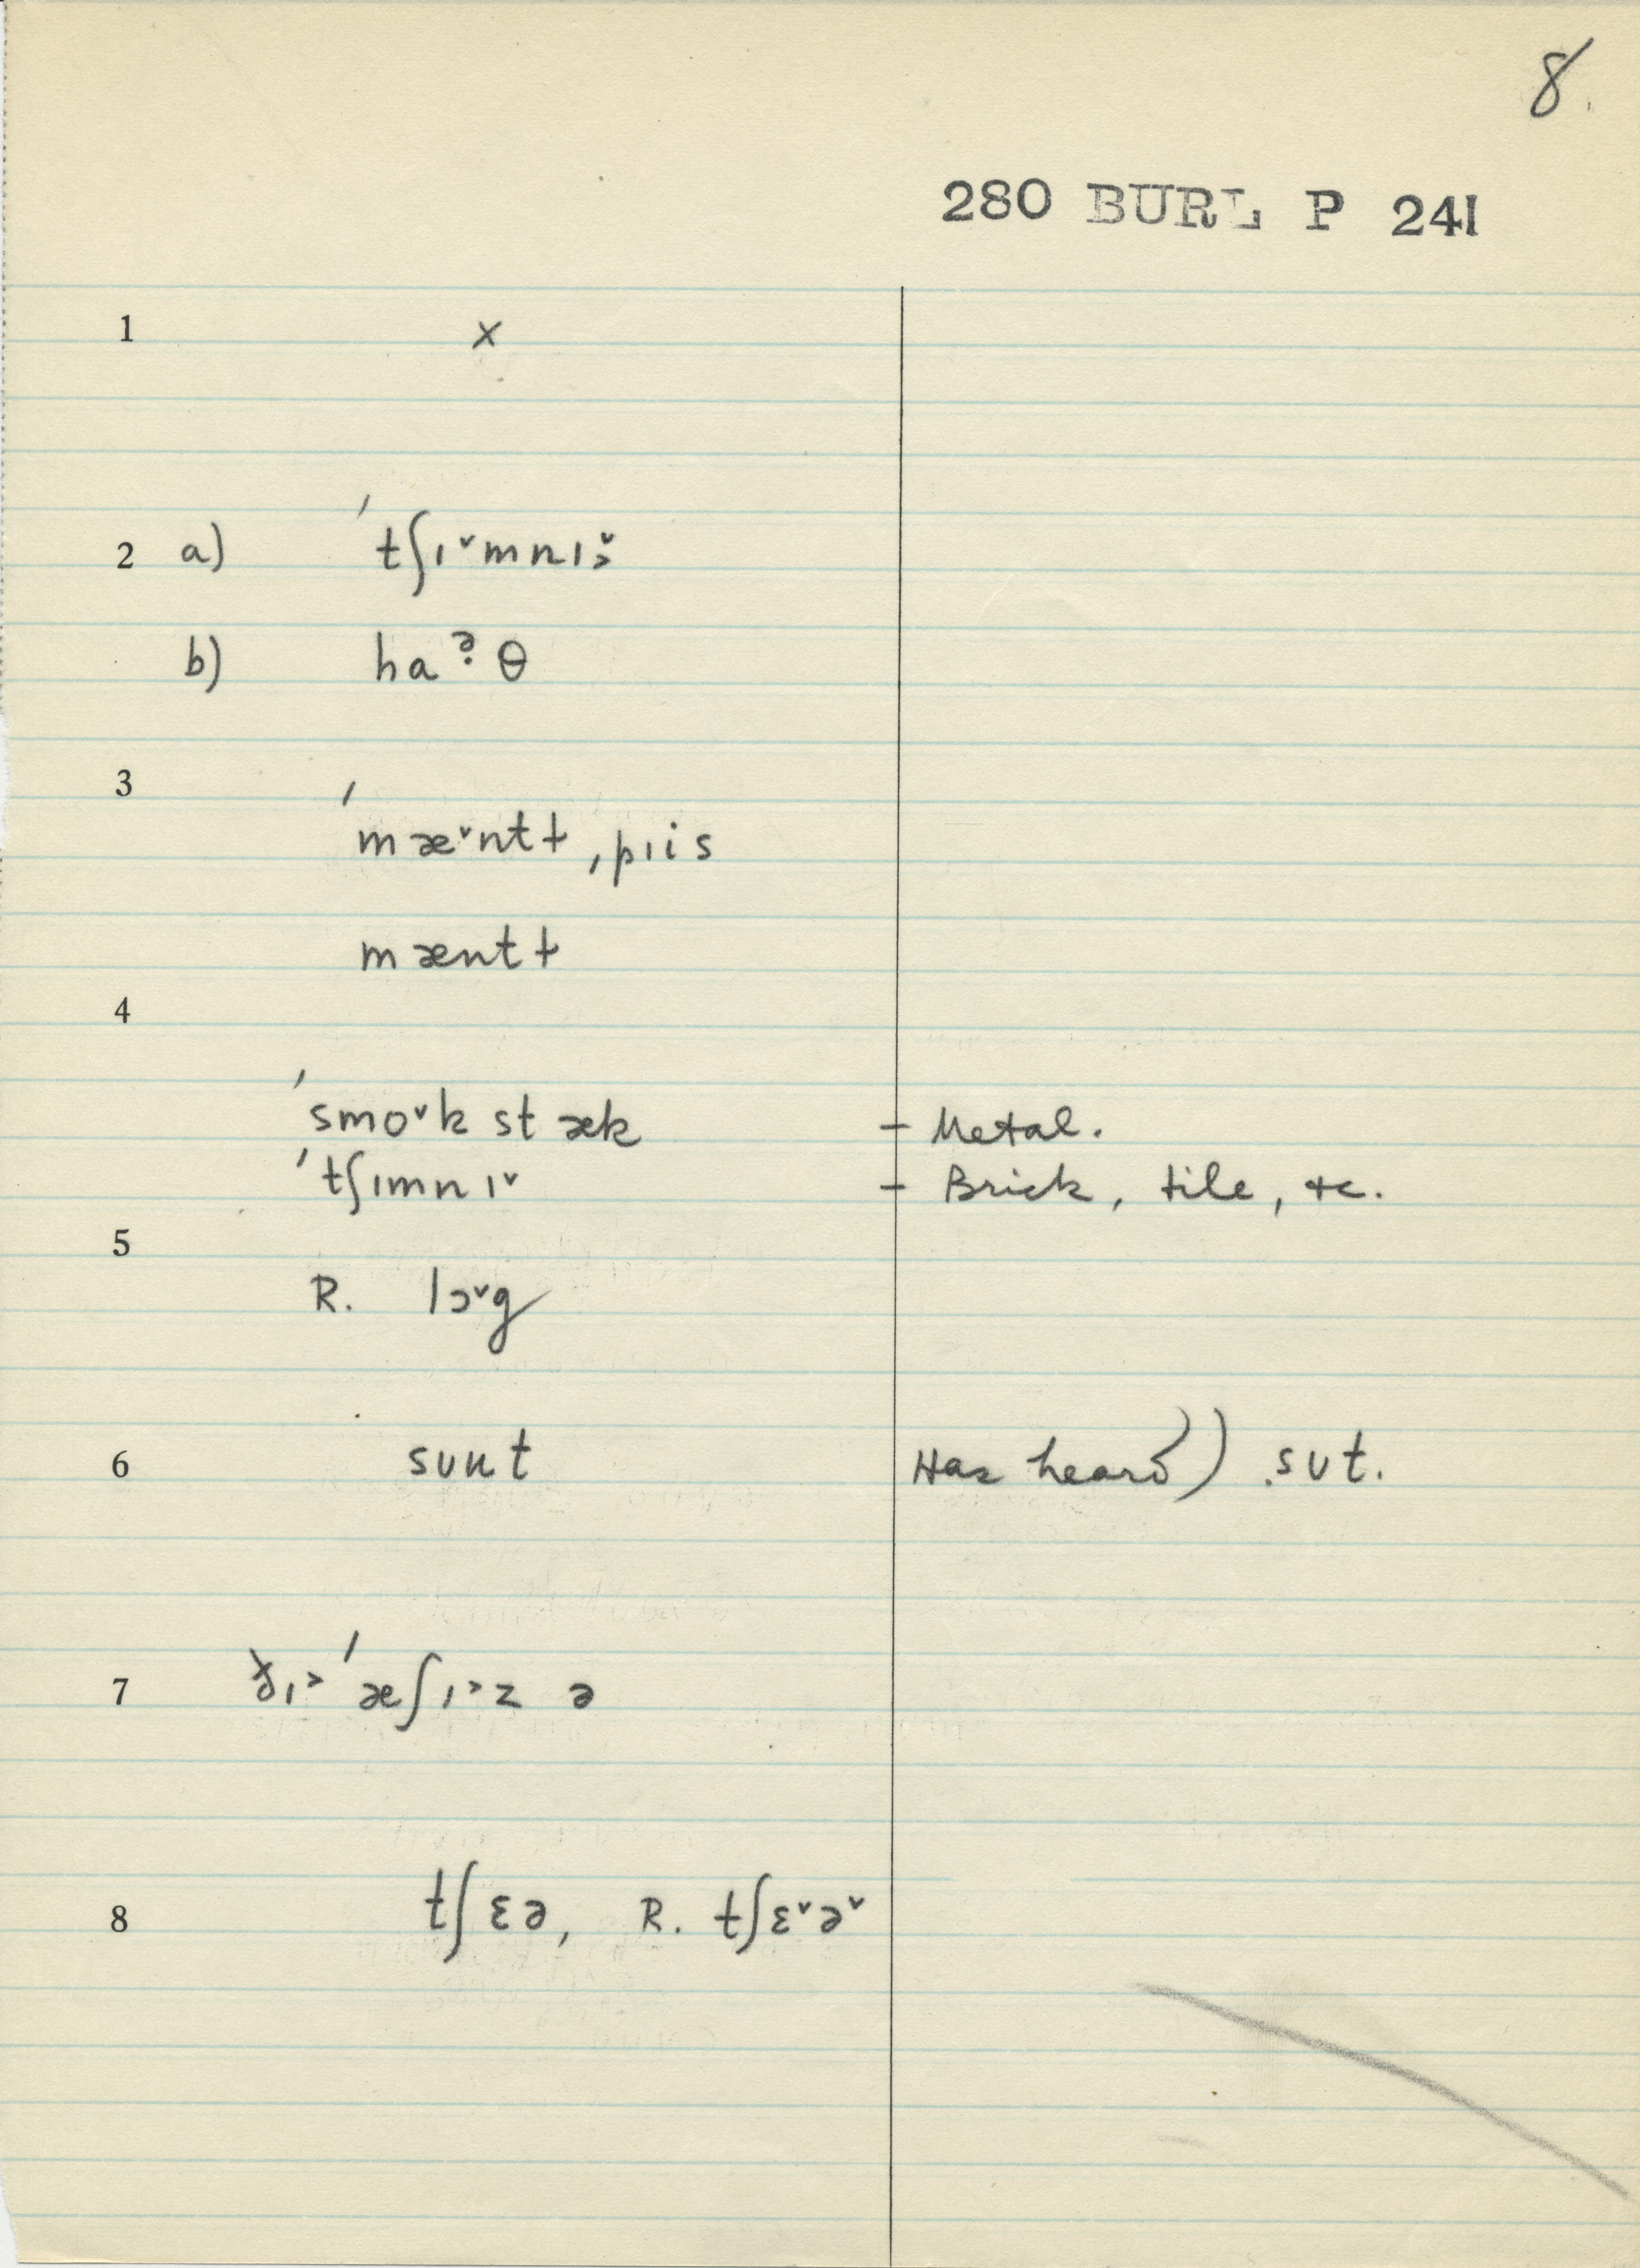 8.
280 BURL P 241
1 x
2 a) ˈtʃɪ˅mnɪ˅˃
b) haᵊ̣θ
3 ˈmæ˅ntɫ ˌpɪis
mæntɫ
4
ˈsmo˅k stæk – Metal.
ˈtʃɪmnɪ˅ – Brick, tile, etc.
5
R. lɔ˅g
6 sunt Has heard) sut.
7 ðɪ˃ ˈæʃɪ˃z ə
8 tʃɛə, R. tʃɛ˅ə˅